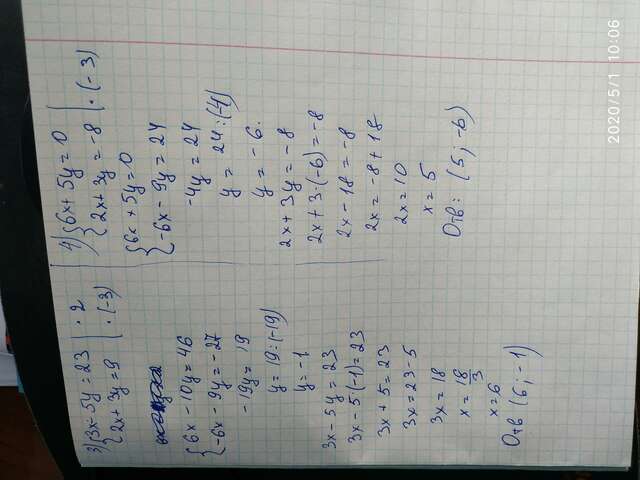 3) {3x - 5y = 23 | · 2
{2x + 3y = 9 | · (-3)
{6x - 10y = 46
{-6x - 9y = -27
-19y = 19
y = 19 : (-19)
y = -1
3x - 5y = 23
3x - 5 (-1) = 23
3x + 5 = 23
3x = 23 - 5
3x = 18
x = 18/3
x = 6
Отв (6 ; -1)
4) {6x + 5y = 0
{2x + 3y = -8 | · (-3)
{6x + 5y = 0
{-6x - 9y = 24
-4y = 24
y = 24 : (-4)
y = -6.
2x + 3y = -8
2x + 3·(-6) = -8
2x - 18 = -8
2x = -8 + 18
2x = 10
x = 5
Отв: (5 ; -6)
2020/5/1 10:06